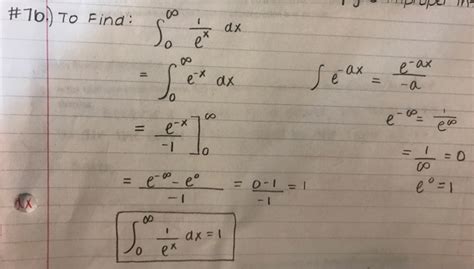 #7b.) To Find: ∫₀^∞ 1/e^x dx
= ∫₀^∞ e^-x dx
∫ e^-ax = e^-ax/-a
= e^-x/-1 ]₀^∞
e^-∞ = 1/e^∞
= 1/∞ = 0
= e^-∞ - e^0/-1 = 0-1/-1 = 1
e^0 = 1
dx
∫₀^∞ 1/e^x dx = 1